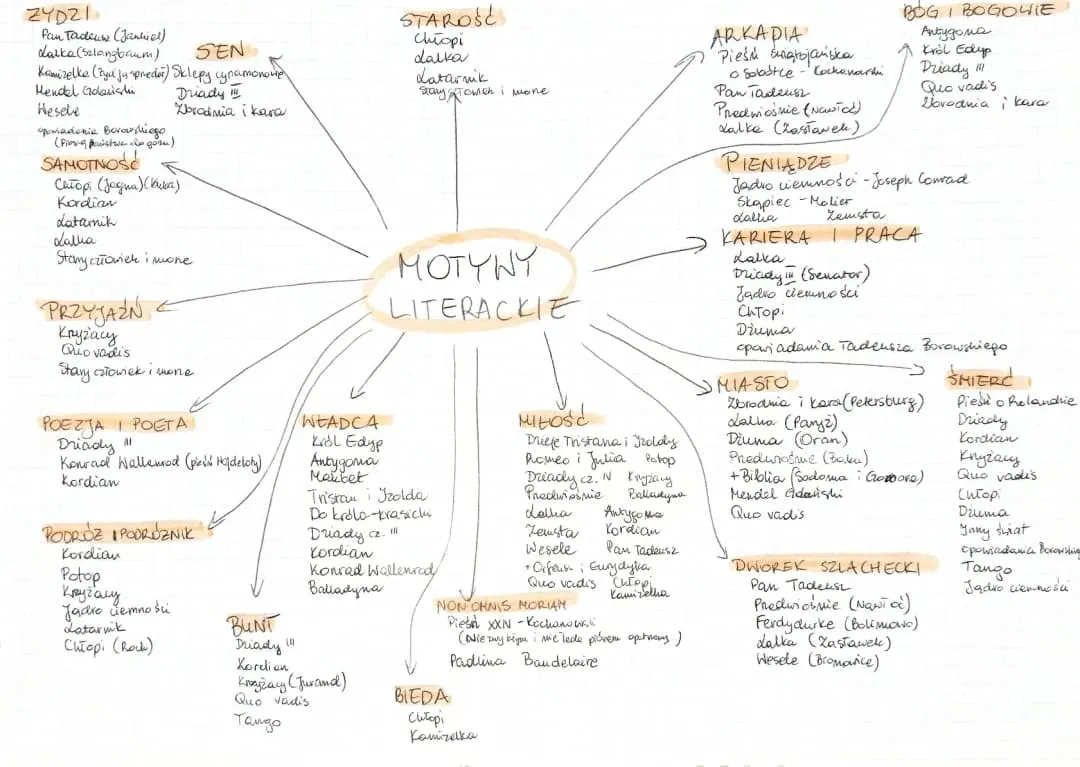 MOTYWY
LITERACKIE
ŻYDZI
Pan Tadeusz (Jankiel)
Lalka (Szlangbaum)
Kamizelka (Żyd ją sprzedał)
Mendel Gdański
Wesele
opowiadania Borowskiego
(Proszę państwa do gazu)
SEN
Sklepy cynamonowe
Dziady III
Zbrodnia i kara
STAROŚĆ
Chłopi
Lalka
Latarnik
Stary człowiek i morze
ARKADIA
Pieśń świętojańska
o Sobótce - Kochanowski
Pan Tadeusz
Przedwiośnie (Nawłoć)
Lalka (Zasławek)
BÓG I BOGOWIE
Antygona
Król Edyp
Dziady III
Quo vadis
Zbrodnia i kara
SAMOTNOŚĆ
Chłopi (Jagna) (Kuba)
Kordian
Latarnik
Lalka
Stary człowiek i morze
PIENIĄDZE
Jądro ciemności - Joseph Conrad
Skąpiec - Molier
Lalka Zemsta
KARIERA I PRACA
Lalka
Dziady III (Senator)
Jądro ciemności
Chłopi
Dżuma
opowiadania Tadeusza Borowskiego
PRZYJAŹŃ
Krzyżacy
Quo vadis
Stary człowiek i morze
POEZJA I POETA
Dziady III
Konrad Wallenrod (pieśń Hajdeloty)
Kordian
WŁADCA
Król Edyp
Antygona
Makbet
Tristan i Izolda
Do króla - Krasicki
Dziady cz. III
Kordian
Konrad Wallenrod
Balladyna
MIŁOŚĆ
Dzieje Tristana i Izoldy
Romeo i Julia Potop
Dziady cz. IV Krzyżacy
Przedwiośnie Balladyna
Lalka Antygona
Zemsta Kordian
Wesele Pan Tadeusz
+ Orfeusz i Eurydyka
Quo vadis Chłopi
Kamizelka
MIASTO
Zbrodnia i kara (Petersburg)
Lalka (Paryż)
Dżuma (Oran)
Przedwiośnie (Baku)
+ Biblia (Sodoma i Gomora)
Mendel Gdański
Quo vadis
ŚMIERĆ
Pieśń o Rolandzie
Dziady
Kordian
Krzyżacy
Quo vadis
Chłopi
Dżuma
Inny świat
opowiadania Borowskieg
Tango
Jądro ciemności
PODRÓŻ I PODRÓŻNIK
Kordian
Potop
Krzyżacy
Jądro ciemności
Latarnik
Chłopi (Roch)
BUNT
Dziady III
Kordian
Krzyżacy (Jurand)
Quo vadis
Tango
NON OMNIS MORIAR
Pieśń XXIV - Kochanowski
(Niezwykłym i nie leda piórem opatrzony)
Padlina Baudelaire
BIEDA
Chłopi
Kamizelka
DWOREK SZLACHECKI
Pan Tadeusz
Przedwiośnie (Nawłoć)
Ferdydurke (Bolimowo)
Lalka (Zasławek)
Wesele (Bronowice)